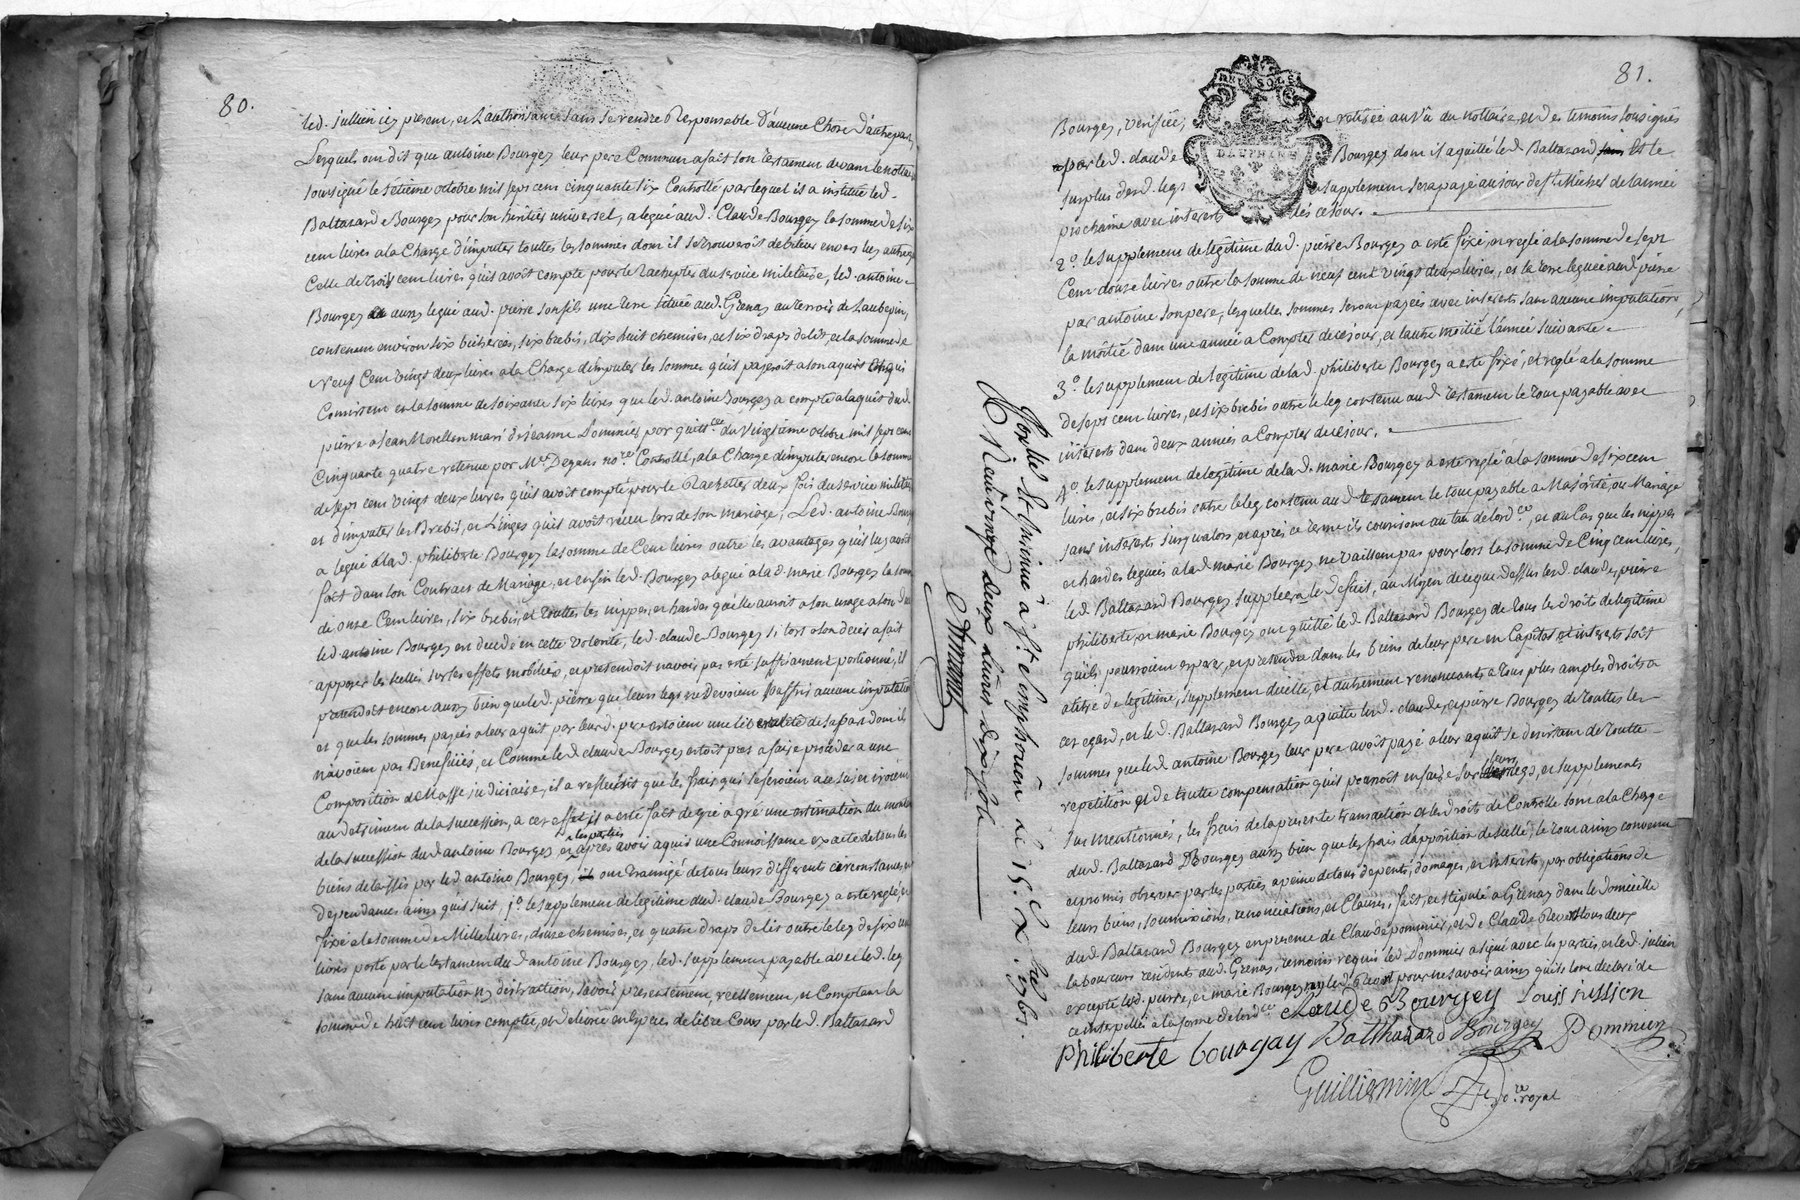 80.
led. Jullien icy present, et L'authorisant sans se rendre Responsable d'aucune Chose d'autre part,
Lesquels ont dit que antoine Bourgey leur pere Commun a fait son testament devant le nottaire
soussigné le sétième octobre mil sept cent cinquante six Controllé par lequel il a institué led.
Baltazard Bourgey pour son héritier universel, a legué aud. Claude Bourgey la somme de six
cent livres a la Charge d'imputer touttes les sommes dont il se trouveroit debiteur envers luy autre que
Celle de trois cent livres qu'il avoit compté pour le Rachepter du service militaire, led. antoine
Bourgey aussy legué aud. pierre son fils une terre située aud. Grenay au terroir de Laubepin,
contenant environ six bicherées, six brebis, dix huit chemises, et six draps de lit, et la somme de
Neuf Cent vingt deux livres a la Charge d'imputer les sommes qu'il payeroit a son aquit et qui
Consistent en la somme de soixante six livres que led. antoine Bourgey a compté a l'aquit dud.
pierre a Jean Morellon mari de jeanne Dominier par quittce. du vingtième octobre mil sept cent
Cinquante quatre retenue par Me. Degans nore. Controllé, a la Charge d'imputer encore la somme
de sept cent vingt deux livres qu'il avoit compté pour le Rachetter deux fois du service militaire
et d'imputer les Brebis, et Linges qu'il avoit réçu lors de son mariage; Led. antoine Bourgey
a legué à lad. philiberte Bourgey la somme de Cent livres outre les avantages qu'il luy avoit
fait dans son Contract de Mariage, et enfin led. Bourgey a legué a lad. marie Bourgey la somme
de onze Cent livres, six brebis, et touttes les nippes, et hardes qu'elle auroit a son usage a son deces
led. antoine Bourgey est decedé en cette volonté, led. claude Bourgey si tôt a son deces a fait
apposer les scellés sur les effets mobiliers, et pretendoit navoir pas esté suffisament portionné, il
pretendoit encore aussy bien que led. pierre que leurs legs ne devoient souffrir aucune imputation
et que les sommes payées a leur aquit par leurd. pere estoient une liberalité de sa part dont ils
n'avoient pas Beneficiés, et Comme led. claude Bourgey estoit prest a faire proceder a une
Composition de Masse judiciaire, il a reflechit que les frais qui se feroient a ce sujet iroient
au detriment de la succession, a cet effet il a esté fait de gré a gré une estimation du montant
de la succession dud. antoine Bourgey et après avoir aquis une Connoissance exacte de tous les
les parties
biens delaissés par led. antoine Bourgey, ont transigé de tous leurs differents circonstances, et
dependances ainsy qu'il suit, 1°. le supplement de legitime dud. claude Bourgey a esté reglé, et
fixé a la somme de Mille livres, douze chemises, et quatre draps de lit outre le leg de six cent
livres porté par le testament dud. antoine Bourgey, led. supplement payable avec led. leg
sans aucune imputation ny distraction, savoir presentement, réellement, et Comptant la
somme de huit cent livres comptée, et delivrée en Espèces de libre Cours par led. Baltazard
81.
DEUX SOLS
DAUPHINE
Bourgey, vérifiée, retirée au vû du nottaire, et des temoins soussignés
par led. claude Bourgey dont il a quitté led. Baltazard Et le
surplus desd. legs supplement sera payé au jour de st. Michel de l'année
prochaine avec interets dès ce jour.
2°. le supplement de legitime dud. pierre Bourgey a esté fixé, et reglé a la somme de sept
Cent douze livres outre la somme de neuf cent vingt deux livres, et la terre leguée aud. pierre
par antoine son pere, lesquelles sommes seront payées avec interets sans aucune imputation,
la moitié dans une année a Compter de ce jour, et l'autre moitié l'année suivante.
3°. le supplement de legitime de lad. philiberte Bourgey a esté fixé, et reglé a la somme
de sept cent livres, et six brebis outre le leg contenu aud. testament le tout payable avec
interets dans deux années a Compter de ce jour.
4°. le supplement de legitime de lad. marie Bourgey a esté reglé à la somme de six cent
livres, et six brebis outre le leg contenu aud. testament le tout payable a Majorité, ou Mariage
sans interets jusqu'alors, et après ce terme ils courriront au tau de lordce, et au Cas que les nippes
et hardes leguées a lad. marie Bourgey ne vaillent pas pour lors la somme de Cinq cent livres,
led. Baltazard Bourgey suppléera le deficit, au Moyen de ce que dessus lesd. claude, pierre
philiberte, et marie Bourgey ont quitté led. Baltazard Bourgey de tous les droits de legitime
qu'ils pourroient esperer, et pretendre dans les biens de leur pere en Capital et interets soit
a titre de legitime, supplement d'icelle, et autrement renoncants a tous plus amples droits a
cet egard, et led. Baltazard Bourgey a quitté lesd. claude, et pierre Bourgey de touttes les
sommes que led. antoine Bourgey leur pere avoit payé a leur aquit se desistant de toutte
repetition et de toutte compensation qu'il pourroit en faire sur leurs legs, et supplements
sus mentionnés, les frais de la presente transaction et les droits de Controlle sont a la Charge
dud. Baltazard Bourgey aussy bien que les frais d'apposition de scellé, le tout ainsy convenu
et promis observer par les parties a peine de tous depents, domages, et interets, par obligations de
leurs biens, soumissions, renonciations, et Clauses, fait, et stipulé a Grenay dans le domicile
dud. Baltazard Bourgey en presence de Claude pommier, et de Claude Revet tous deux
laboureurs residents aud. Grenay, temoins requis led. Pommier a signé avec les parties, et led. julien
excepté led. pierre, et marie Bourgey ny led. Revet pour ne savoir ainsy qu'ils l'ont declaré de
ce interpellés a la forme de lordce.
claude Bourgey Louis jullien
Philiberte bourgay Balthazard Bourgey Pommier
Guilliermin nore. royal
Conllé Et Insinué à St. Simphorien Le 15. xbre 1761.
R Neuf vingt deux Livres dix sols